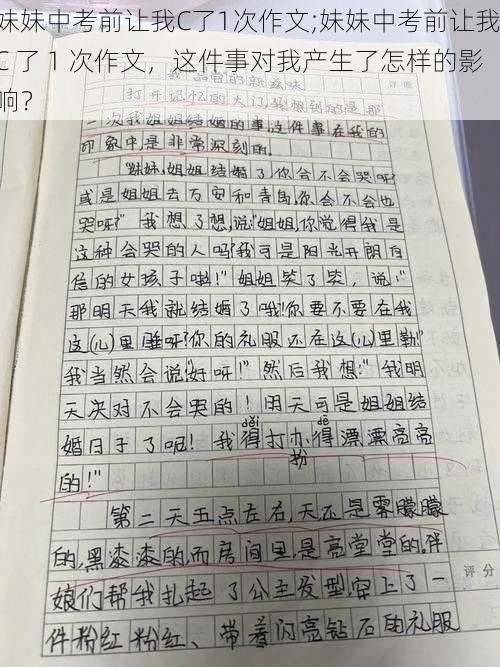 妹妹中考前让我C了1次作文;妹妹中考前让我
C了1次作文，这件事对我产生了怎样的影
响？
打开记忆的大门,我想到的是那
一次我姐姐结婚的事,这件事在我的
印象中,是非常深刻的。
"妹妹,姐姐结婚了你会不会哭呀?
或是姐姐去万安和青岛,你会不会也
哭呀?"我想了想,说:"姐姐,你觉得我是
这种会哭的人吗?我可是阳光开朗自
信的女孩子啦!"姐姐笑了笑，说："
那明天我就结婚了哦!你要不要在我
这(儿)里睡呀?你的礼服还在这(儿)里勒!"
我当然会说"好呀!"然后我想:"我明
天决对不会哭的!明天可是姐姐结
婚日子了呢!我得打扮得漂漂亮亮
的!"
第二天五点左右,天还是雾朦朦
的,黑漆漆的,而房间里,是亮堂堂的,伴
娘们帮我扎起了公主发型,穿上了一
评分
件粉红粉红、带着闪亮钻石的礼服